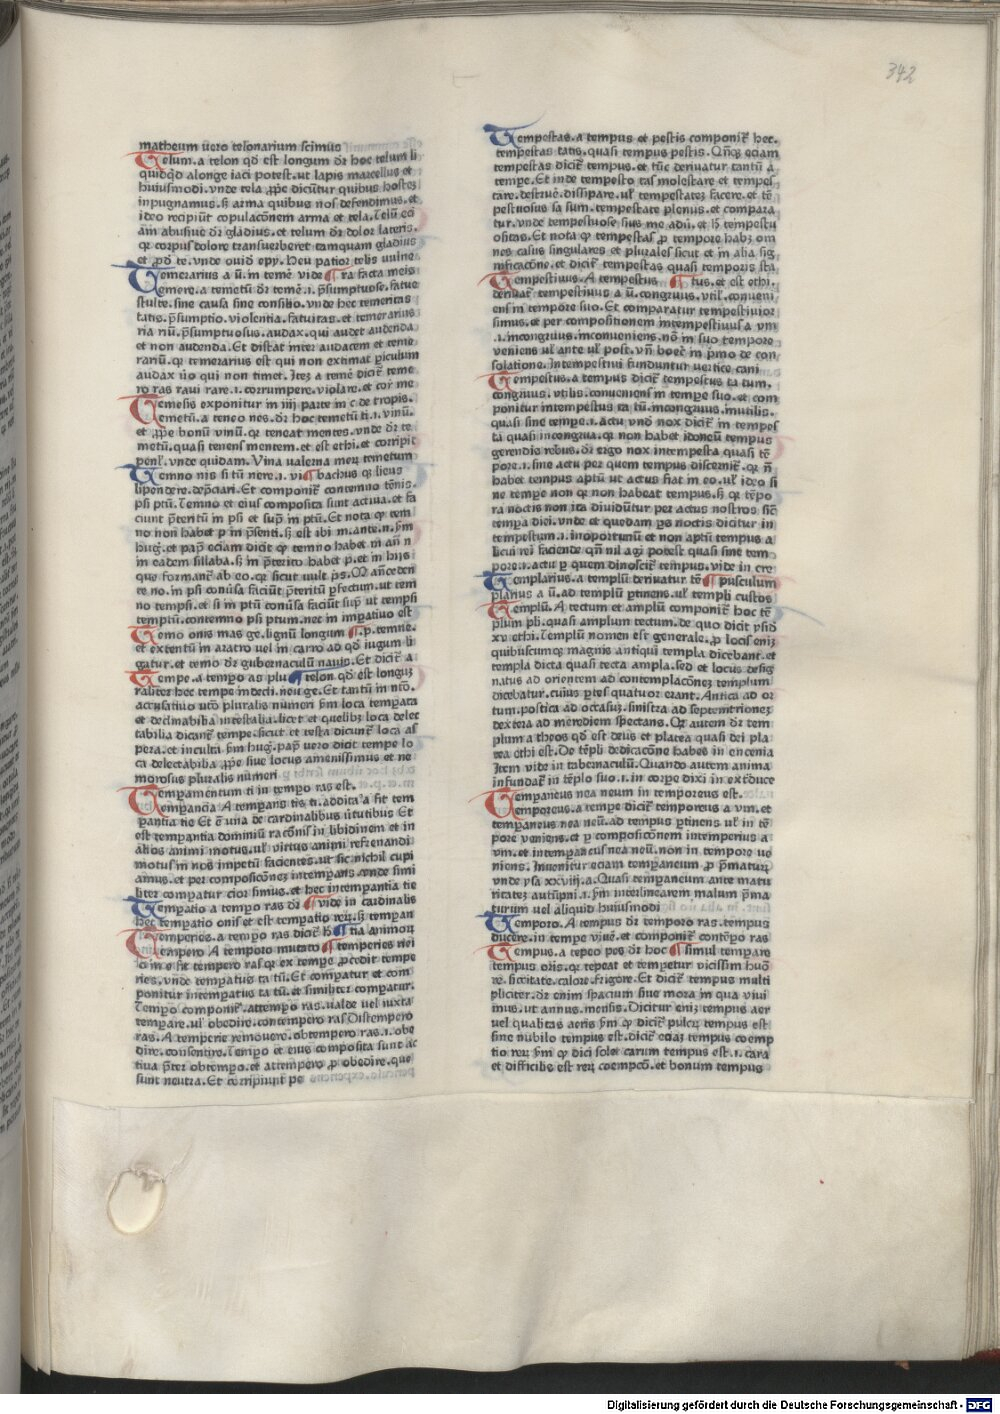 342
matheum uero telonarium scimus
Telum. a telon qd̄ est longum dr̄ hoc telum li
quidqd̄ alonge iaci potest. ut lapis marcellus et
huiusmodi. vnde tela ꝓpe dicūtur quibus hostez
inpugnamus. sꝫ arma quibus nos defendimus. et
ideo recipiūt copulacōnem arma et tela. Telū eci
am abusiue dr̄ gladius. et telum dr̄ dolor lateris.
qꝛ corpus dolore transuerberet tamquam gladius
et ꝓd te. vnde ouid epy. Heu patior telis uulne
Temerarius a ū. in temē vide ¶ ra facta meis
Temere. a temetū dr̄ temē .i. p̄sumptuose. fatue
stulte. sine causa sine consilio. vnde hec temeritas
tatis. p̄sumptio. violentia. fatuitas. et temerarius
ria riū. p̄sumptuosus. audax. qui audet audenda
et non audenda. Et distat inter audacem et teme
rariū. qꝛ temerarius est qui non extimat ꝑiculum
audax ūo qui non timet. Itez a temē dicit᷑ teme
ro ras raui rare .i. corrumpere. violare. et cor me
Temesis exponitur in iiij parte in c de tropis.
Temetū. a teneo nes. dr̄ hoc temetū ti .i. vinū.
et ꝓpe bonū vinū. qꝛ teneat mentes. vnde dr̄ te
metū. quasi tenens mentem. et est ethi. et corripit
penl̄. vnde quidam. Vina ualerna merꝫ temetum
Temno nis si tū nere .i. vi ¶ bachus qꝫ lieus
lipendere. dep̄ciari. Et componit᷑ contemno tēnis.
psi ptū. Temno et eius composita sunt actiua. et fa
ciunt p̄teritū in psi et sup̄ in ptū. Et nota qꝛ tem
no non habet p in p̄senti. sꝫ est ibi m. ante. n. ẜm
hug. et pap̄ eciam dicit qꝛ temno habet m an̄ n
in eadem sillaba. sꝫ in p̄terito habet p. et in hijs
que formant᷑ ab eo. qꝛ sicut uult p̄s. M anteceden
te no. in psi conūsa faciūt p̄teritū ꝑfectum. ut tem
no tempsi. et si in ptū conūsa faciūt sup̄ ut tempsi
temptū. contemno psi ptum. nec in impatiuo est
Temo onis mas ge. lignū longum ¶ .p. temne.
et extentū in aratro vel in carro ad qd̄ iugum li
gatur. et temo dr̄ gubernaculū nauis. Et dicit᷑ a
Tempe. a tempo as plu ¶ telon qd̄ est longuꝫ
raliter hec tempe indecli. neu ge. Et tantū in nto.
accusatiuo uc͞to pluralis numeri ẜm loca temꝑata
et declinabilia intestalia. licet et quelibꝫ loca delec
tabilia dicant᷑ tempe. sicut et testa dicunt᷑ loca as
pera. et inculta ẜm hug. pap̄ uero dicit tempe lo
ca delectabilia ꝓpe siue locus amenissimus et ne
morosus pluralis numeri
Temꝑamentum ti in temꝑo ras est.
Temꝑancia. A temꝑans tis ti. addita a fit tem
ꝑantia tie Et ē una de cardinalibus uirtutibus Et
est temꝑantia dominiū racōnis in libidinem et in
alios animi motus. ul̄ virtus animi refrenandi
motus in nos inpetū facientes. ut sic nichil cupi
amus. et per composicōnez intemꝑans. vnde simi
liter comꝑatur cior simus. et hec intemꝑantia tie
Temꝑatio a temꝑo ras dr̄ ¶ vide in cardinalis
hec temꝑatio onis et est temꝑatio rerꝫ. sꝫ temꝑan
Temꝑeries. a temꝑo ras dicit᷑ h̄ ¶ tia animorꝫ
Tempero A temporo mutato ¶ temperies riei
o in e fit tempero ras qꝛ ex tempe ꝓcedit tempe
ries. vnde temꝑatus ta tū. Et comꝑatur et com
ponitur intemꝑatus ta tū. et similiter comꝑatur.
Temꝑo componit᷑. attemꝑo ras. ualde uel iuxta
temꝑare. ul̄ obedire. contempero ras Distempero
ras. A temperie remouere. obtempero ras .i. obe
dire. consentire. Temꝑo et eius composita sunt ac
tiua p̄ter obtemꝑo. et attempero ꝓ obedire. que
sunt neutra. Et corripiunt pe
Tempestas. a tempus et pestis componit᷑ hec.
tempestas tatis. quasi tempus pestis. Qn̄qꝫ eciam
tempestas dicit᷑ tempus. et tūc deriuatur tantū a
tempe. Et inde tempesto tas molestare et tempes
tare. destruē. dissipare. ul̄ tempestatez facere. et tē
pestuosus sa sum. tempestate plenus. et compara
tur. vnde tempestuose sius me adū. et h̄ tempestu
ositas. Et nota qꝛ tempestas ꝓ tempore habꝫ om
nes casus singulares et plurales sicut et in alia sig
nificacōne. et dicit᷑ tempestas quasi temporis sta
Tempestiuus. A tempestus ¶ tus. et est ethi.
deriuat᷑ tempestiuus a ū. congruus. util̄. conueni
ens in tempore suo. Et comparatur tempestiuior
simus. et per compositionem intempestiuus a vm
.i. incongruus. inconueniens. nō in suo tempore
veniens ul̄ ante ul̄ post. vn̄ boet᷑ in p̄mo de con
solatione. Intempestiui funduntur vertice cani
Tempestus. a tempus dicit᷑ tempestus ta tum.
congruus. vtilis. conueniens in tempe suo. et com
ponitur intempestus ta tū. incongruus. inutilis.
quasi sine tempe .i. actu vnd nox dicit᷑ in tempes
ta quasi incongrua. qꝛ non habet idoneū tempus
gerendis rebus. dr̄ ergo nox intempesta quasi tē
pore .i. sine actu per quem tempus discernit᷑. qꝛ n̄
habet tempus aptū ut actus fiat in eo. ul̄ ideo si
ne tempe non qꝛ non habeat tempus. sꝫ qꝛ tēpo
ra noctis non ita diuidūtur per actus nostros sic̄
tempa diei. vnde et quedam ꝑs noctis dicitur in
tempestum .i. inoportunū et non aptū tempus a
licui rei faciende qn̄ nil agi potest quasi sine tem
pore .i. actu ꝑ quem dinoscit᷑ tempus. vide in cre
Templarius. a templū deriuatur tē ¶ pusculum
plarius a ū. ad templū ꝑtinens. ul̄ templi custos
Templū. A tectum et amplū componit᷑ hoc tē
plum pli. quasi amplum tectum. de quo dicit ysid
xv ethi. Templū nomen est generale. ꝓ locis eniꝫ
quibuscumqꝫ magnis antiqui templa dicebant. et
templa dicta quasi tecta ampla. sed et locus desig
natus ad orientem ad contemplacōnez templum
dicebatur. cuius ꝑtes quatuor erant. Antica ad or
tum. postica ad occasuꝫ. sinistra ad septemtrionez
dextera ad meridiem spectans. Qꝛ autem dr̄ tem
plum a theos qd̄ est deus et platea quasi dei pla
tea ethi est. De tēpli dedicacōne habes in encenia
Item vide in tabernaculū. Quando autem anima
infundat᷑ in tēplo suo .i. in corpe dixi in extᷓduce
Tempaneus nea neum in temporeus est.
Temporeus. a tempe dicit᷑ temporeus a vm. et
temꝑaneus nea neū. ad tempus ꝑtinens ul̄ in tē
pore veniens. et ꝑ composicōnem intemperius a
vm. et intemꝑaneus nea neū. non in tempore ue
niens. Inuenitur eciam temꝑaneum ꝓ p̄maturꝫ
vnde ysa xxviij. a. Quasi temꝑaneum ante matu
ritatez autūpni .i. ẜm interlinearem malum p̄ma
turum uel aliquid huiusmodi
Temporo. A tempus dr̄ temporo ras. tempus
ducere. in tempe viuē. et componit᷑ contēꝑo ras
Tempus. a tepeo pes dr̄ hoc ¶ simul temꝑare
tempus oris. qꝛ tepeat et tempetur vicissim huō
re. siccitate. calore. frigore. Et dicit᷑ tempus multi
pliciter. dr̄ enim spacium siue mora in qua viui
mus. ut annus. mensis. Dicitur eniꝫ tempus aer
uel qualitas aeris ẜm qꝛ dicit᷑ pulcrꝫ tempus est
sine nubilo tempus est. dicit᷑ eciaꝫ tempus coemp
tio rerꝫ ẜm qꝛ dici solet carum tempus est .i. cara
et difficilis est rerꝫ coempcō. et bonum tempus
Digitalisierung gefördert durch die Deutsche Forschungsgemeinschaft - DFG